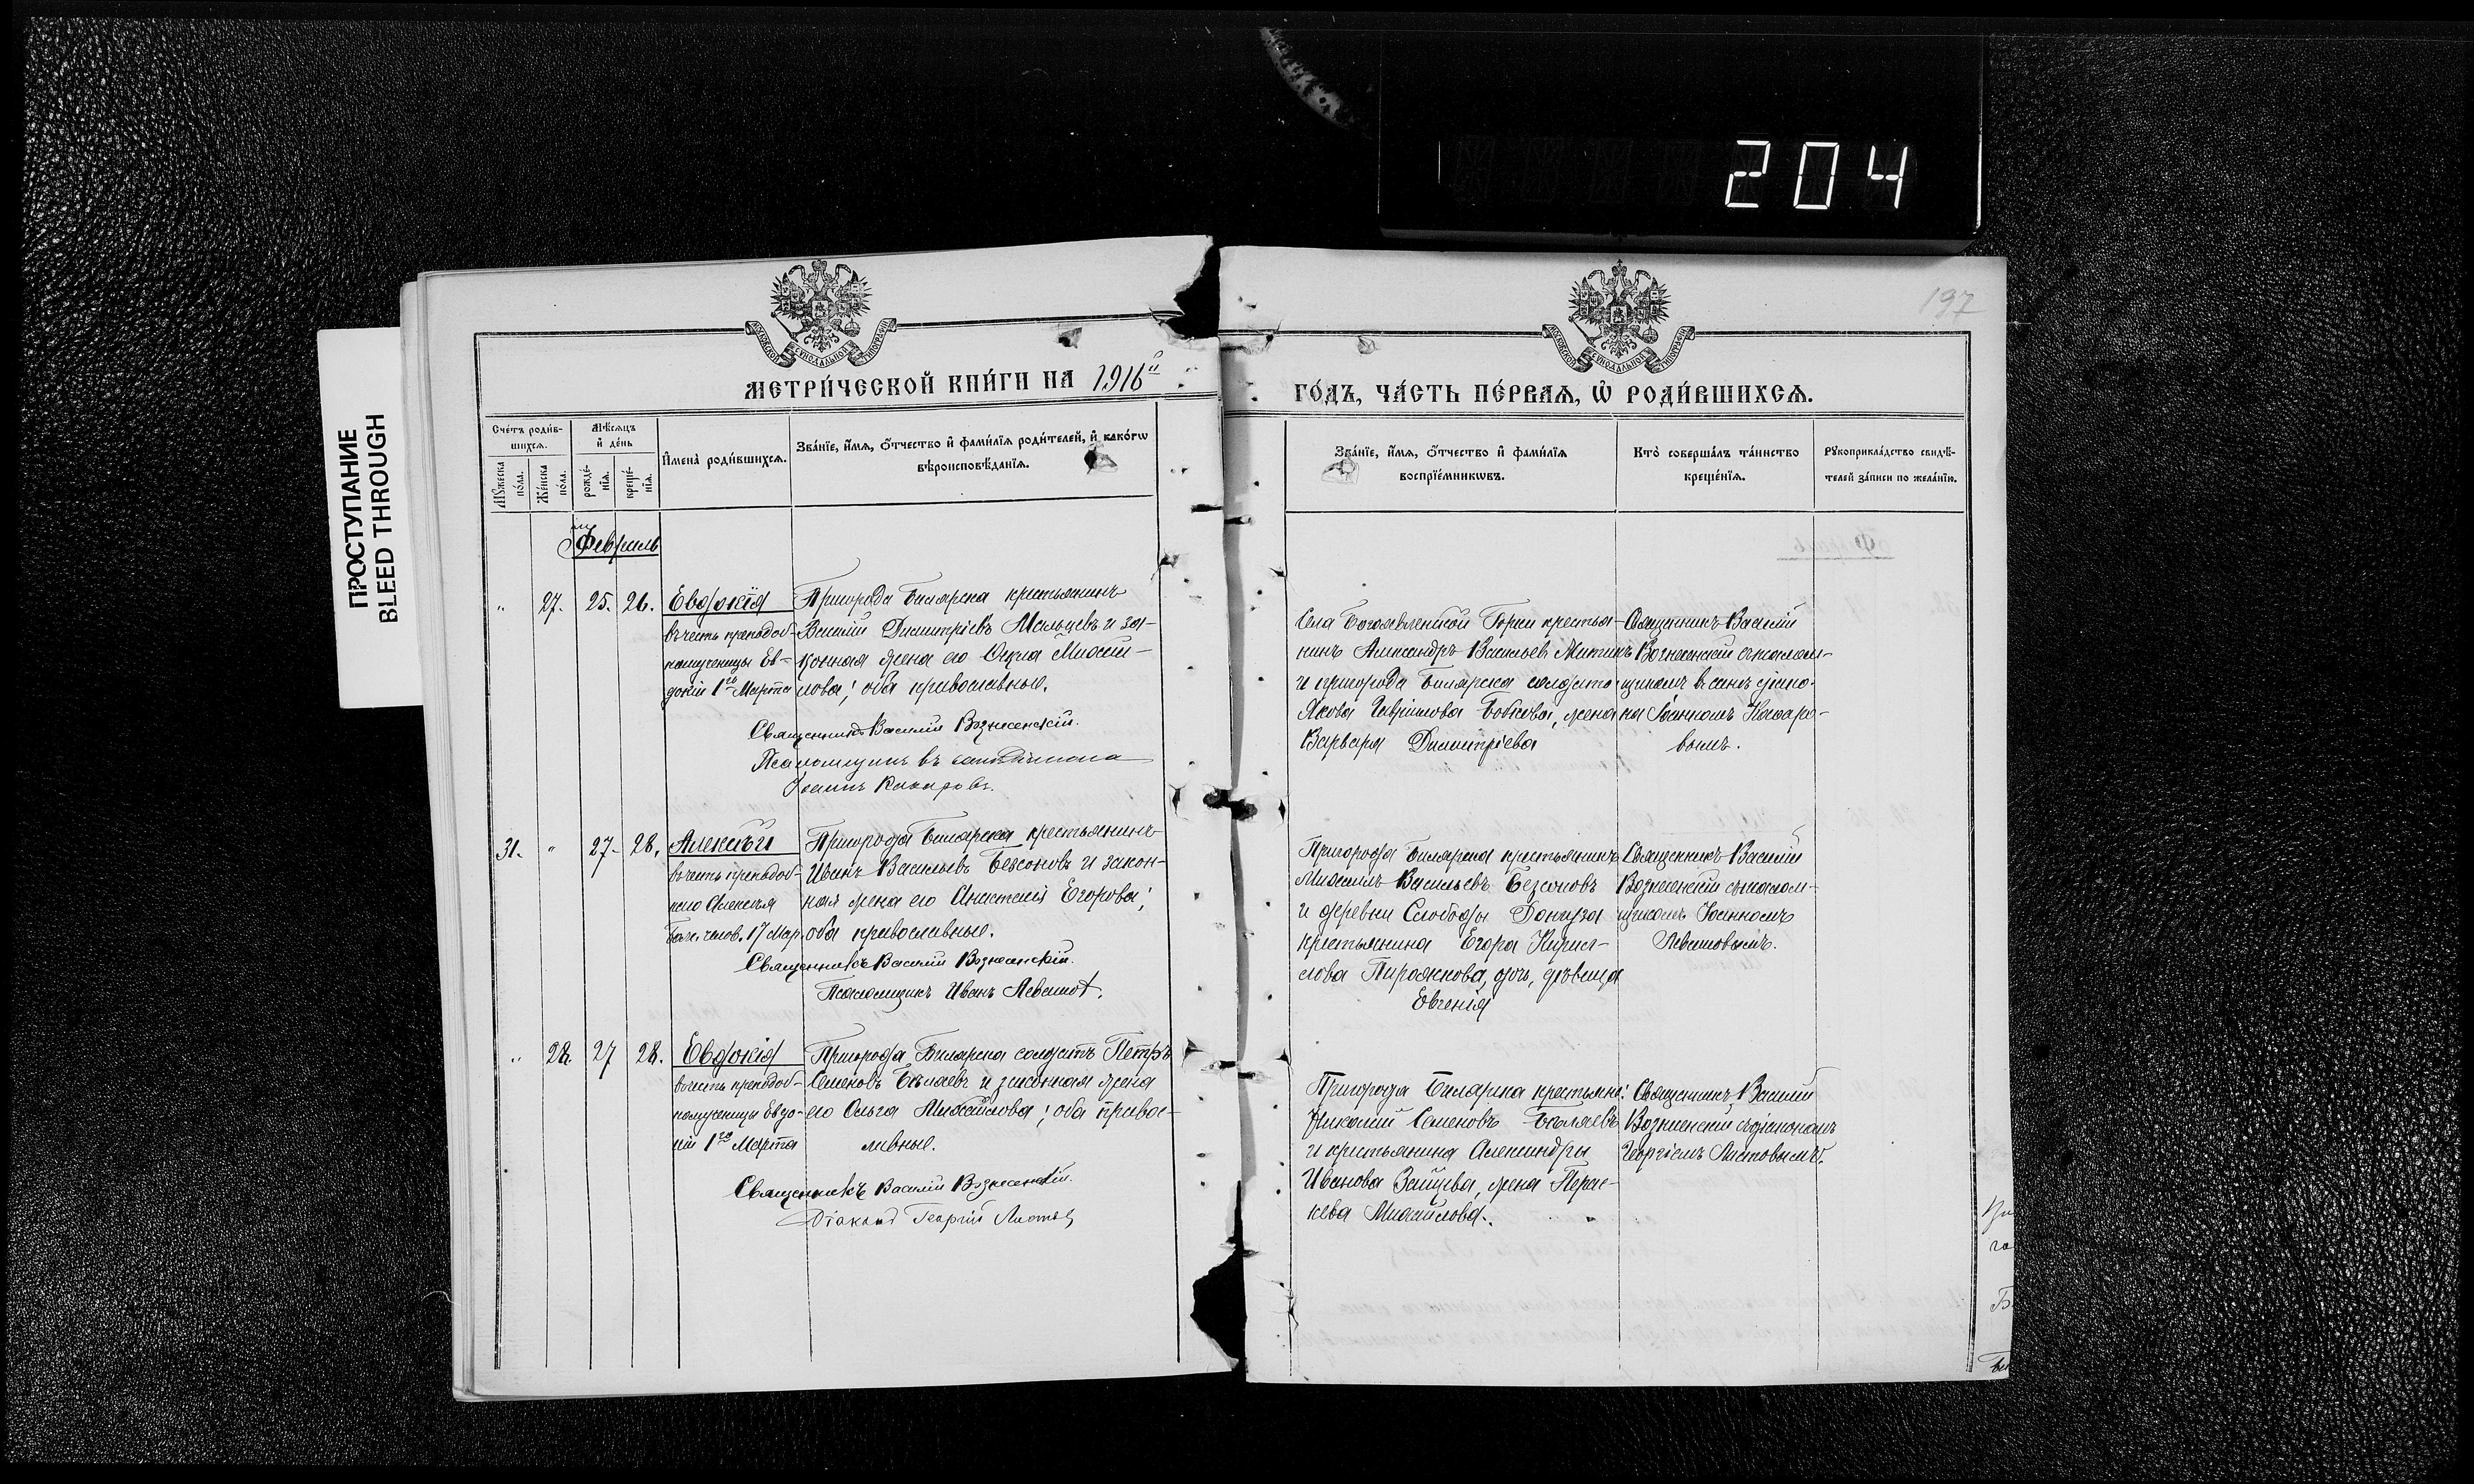 204
ПРОСТУПАНИЕ
BLEED THROUGH
197
МОСКОВСКОЙ СѴНОДАЛЬНОЙ ТИПОГРАФІИ
МОСКОВСКОЙ СѴНОДАЛЬНОЙ ТИПОГРАФІИ
МЕТРИ́ЧЕСКОЙ КНИ́ГИ НА 1916й
ГО́ДЪ, ЧА́СТЬ ПЕ́РВАЯ, Ѡ҆ РОДИ́ВШИХСЯ.
Сче́тъ роди́в-
шихся.
Мꙋ́жеска по́ла.
Же́нска по́ла.
Мѣ́сяцъ
и҆ де́нь
рожде́-
нїя.
креще́-
нїя.
И҆мена̀ роди́вшихся.
Зва́нїе, и҆́мя, ѻ҆́тчество и҆ фами́лїя роди́телей, и҆ како́гѡ
вѣроисповѣ́данїя.
Зва́нїе, и҆́мя, ѻ҆́тчество и҆ фами́лїя
воспрїе́мникѡвъ.
Кто̀ соверша́лъ та́инство
креще́нїя.
Рꙋкоприкла́дство свидѣ́-
телей за́писи по жела́нїю.
Февраль
" 27. 25. 26. Евдокія
въ честь преподоб-
номученицы Ев-
докіи 1го Марта
Пригорода Билярска крестьянинъ
Василій Димитріевъ Мальцевъ и за-
конная жена его Михаи-
лова; оба православные.
Священникъ Василій Вознесенскій.
Псаломщикъ въ санѣ діакона
Іоаннъ
Села Богоявленской Горки крестья-
нинъ Александръ Васильевъ
и пригорода Билярска солдата
Якова Гавріилова жена
Варвара Димитріева
Священникъ Василій
Вознесенскій съ псалом-
щикомъ въ санѣ діако-
на Іоанномъ
вымъ.
31. " 27. 28. Алексѣй
въ честь преподоб-
наго Алексѣя
Бож. челов. 17 Мар.
Пригорода Билярска крестьянинъ
Иванъ Васильевъ Безсоновъ и закон-
ная жена его Анастасія Егорова;
оба православные.
Священникъ Василій Вознесенскій.
Псаломщикъ Иванъ Левашов.
Пригорода Билярска крестьянинъ
Михаилъ Васильевъ Безсоновъ
и деревни Слободы
крестьянина Егора Кирил-
лова Пирожкова, дочь, дѣвица
Евгенія
Священникъ Василій
Вознесенскій съ псалом-
щикомъ Іоанномъ
Левашовымъ.
" 28. 27 28. Евдокія
въ честь преподоб-
номученицы Евдо-
кіи 1го Марта
Пригорода Билярска солдатъ Петръ
Семеновъ Бѣляевъ и законная жена
его Ольга Михайлова; оба правос-
лавные.
Священникъ Василій Вознесенскій.
Діаконъ Георгій Листовъ
Пригорода Билярска крестьяне:
Николай Семеновъ Бѣляевъ
и крестьянина Александры
Иванова Зайцева, жена Парас-
кева Михайлова.
Священникъ Василій
Вознесенскій съ діакономъ
Георгіемъ Листовымъ.